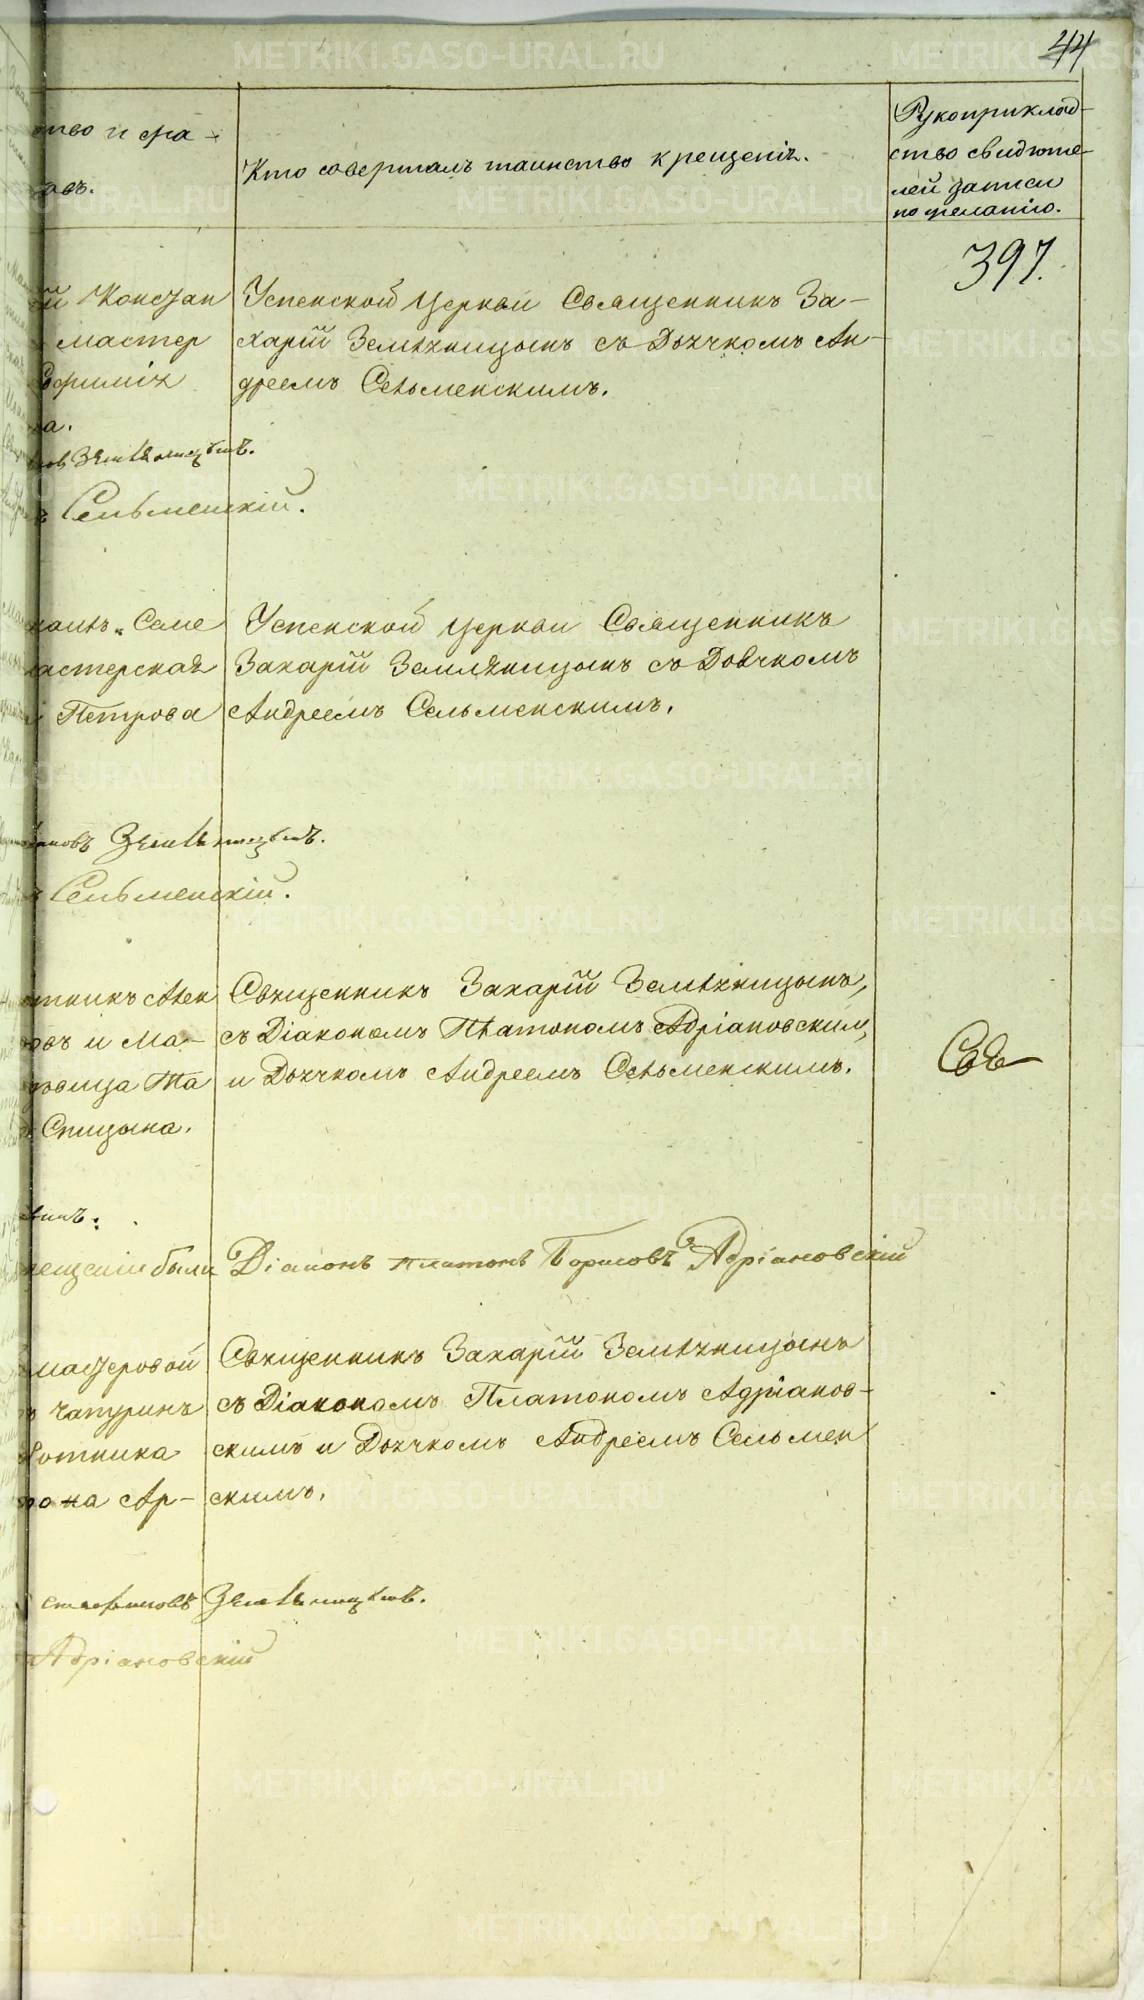 44
ство и фа-
овъ.
Кто совершалъ таинство крещенія.
Рукоприклад-
ство свидѣте-
лей записи
по желанію.
397.
й Констан
мастер
Ефимія
ва.
Успенской Церкви Священникъ За-
харій Земляницынъ съ Дьячкомъ Ан-
дреемъ Сельменскимъ.
Земляницынъ.
Сельменскій.
Семе
мастерская
Петрова
Успенской Церкви Священникъ
Захарій Земляницынъ съ Дьячкомъ
Андреемъ Сельменскимъ.
Земляницынъ.
Сельменскій.
отникъ Алек
овъ и Ма-
Та
Спицына.
Священникъ Захарій Земляницынъ,
съ Діакономъ Платономъ Адріановским,
и Дьячкомъ Андреемъ Сельменскимъ.
Свѣ
рещеніи были Діаконъ Платонъ Борисовъ Адріановскій
мастеровой
Чатуринъ
ротника
на Ар-
Священникъ Захарій Земляницынъ
съ Діакономъ Платономъ Адріанов-
скимъ и Дьячкомъ Андреемъ Сельмен
скимъ.
Стефановъ Земляницынъ.
Адріановскій
METRIKI.GASO-URAL.RU